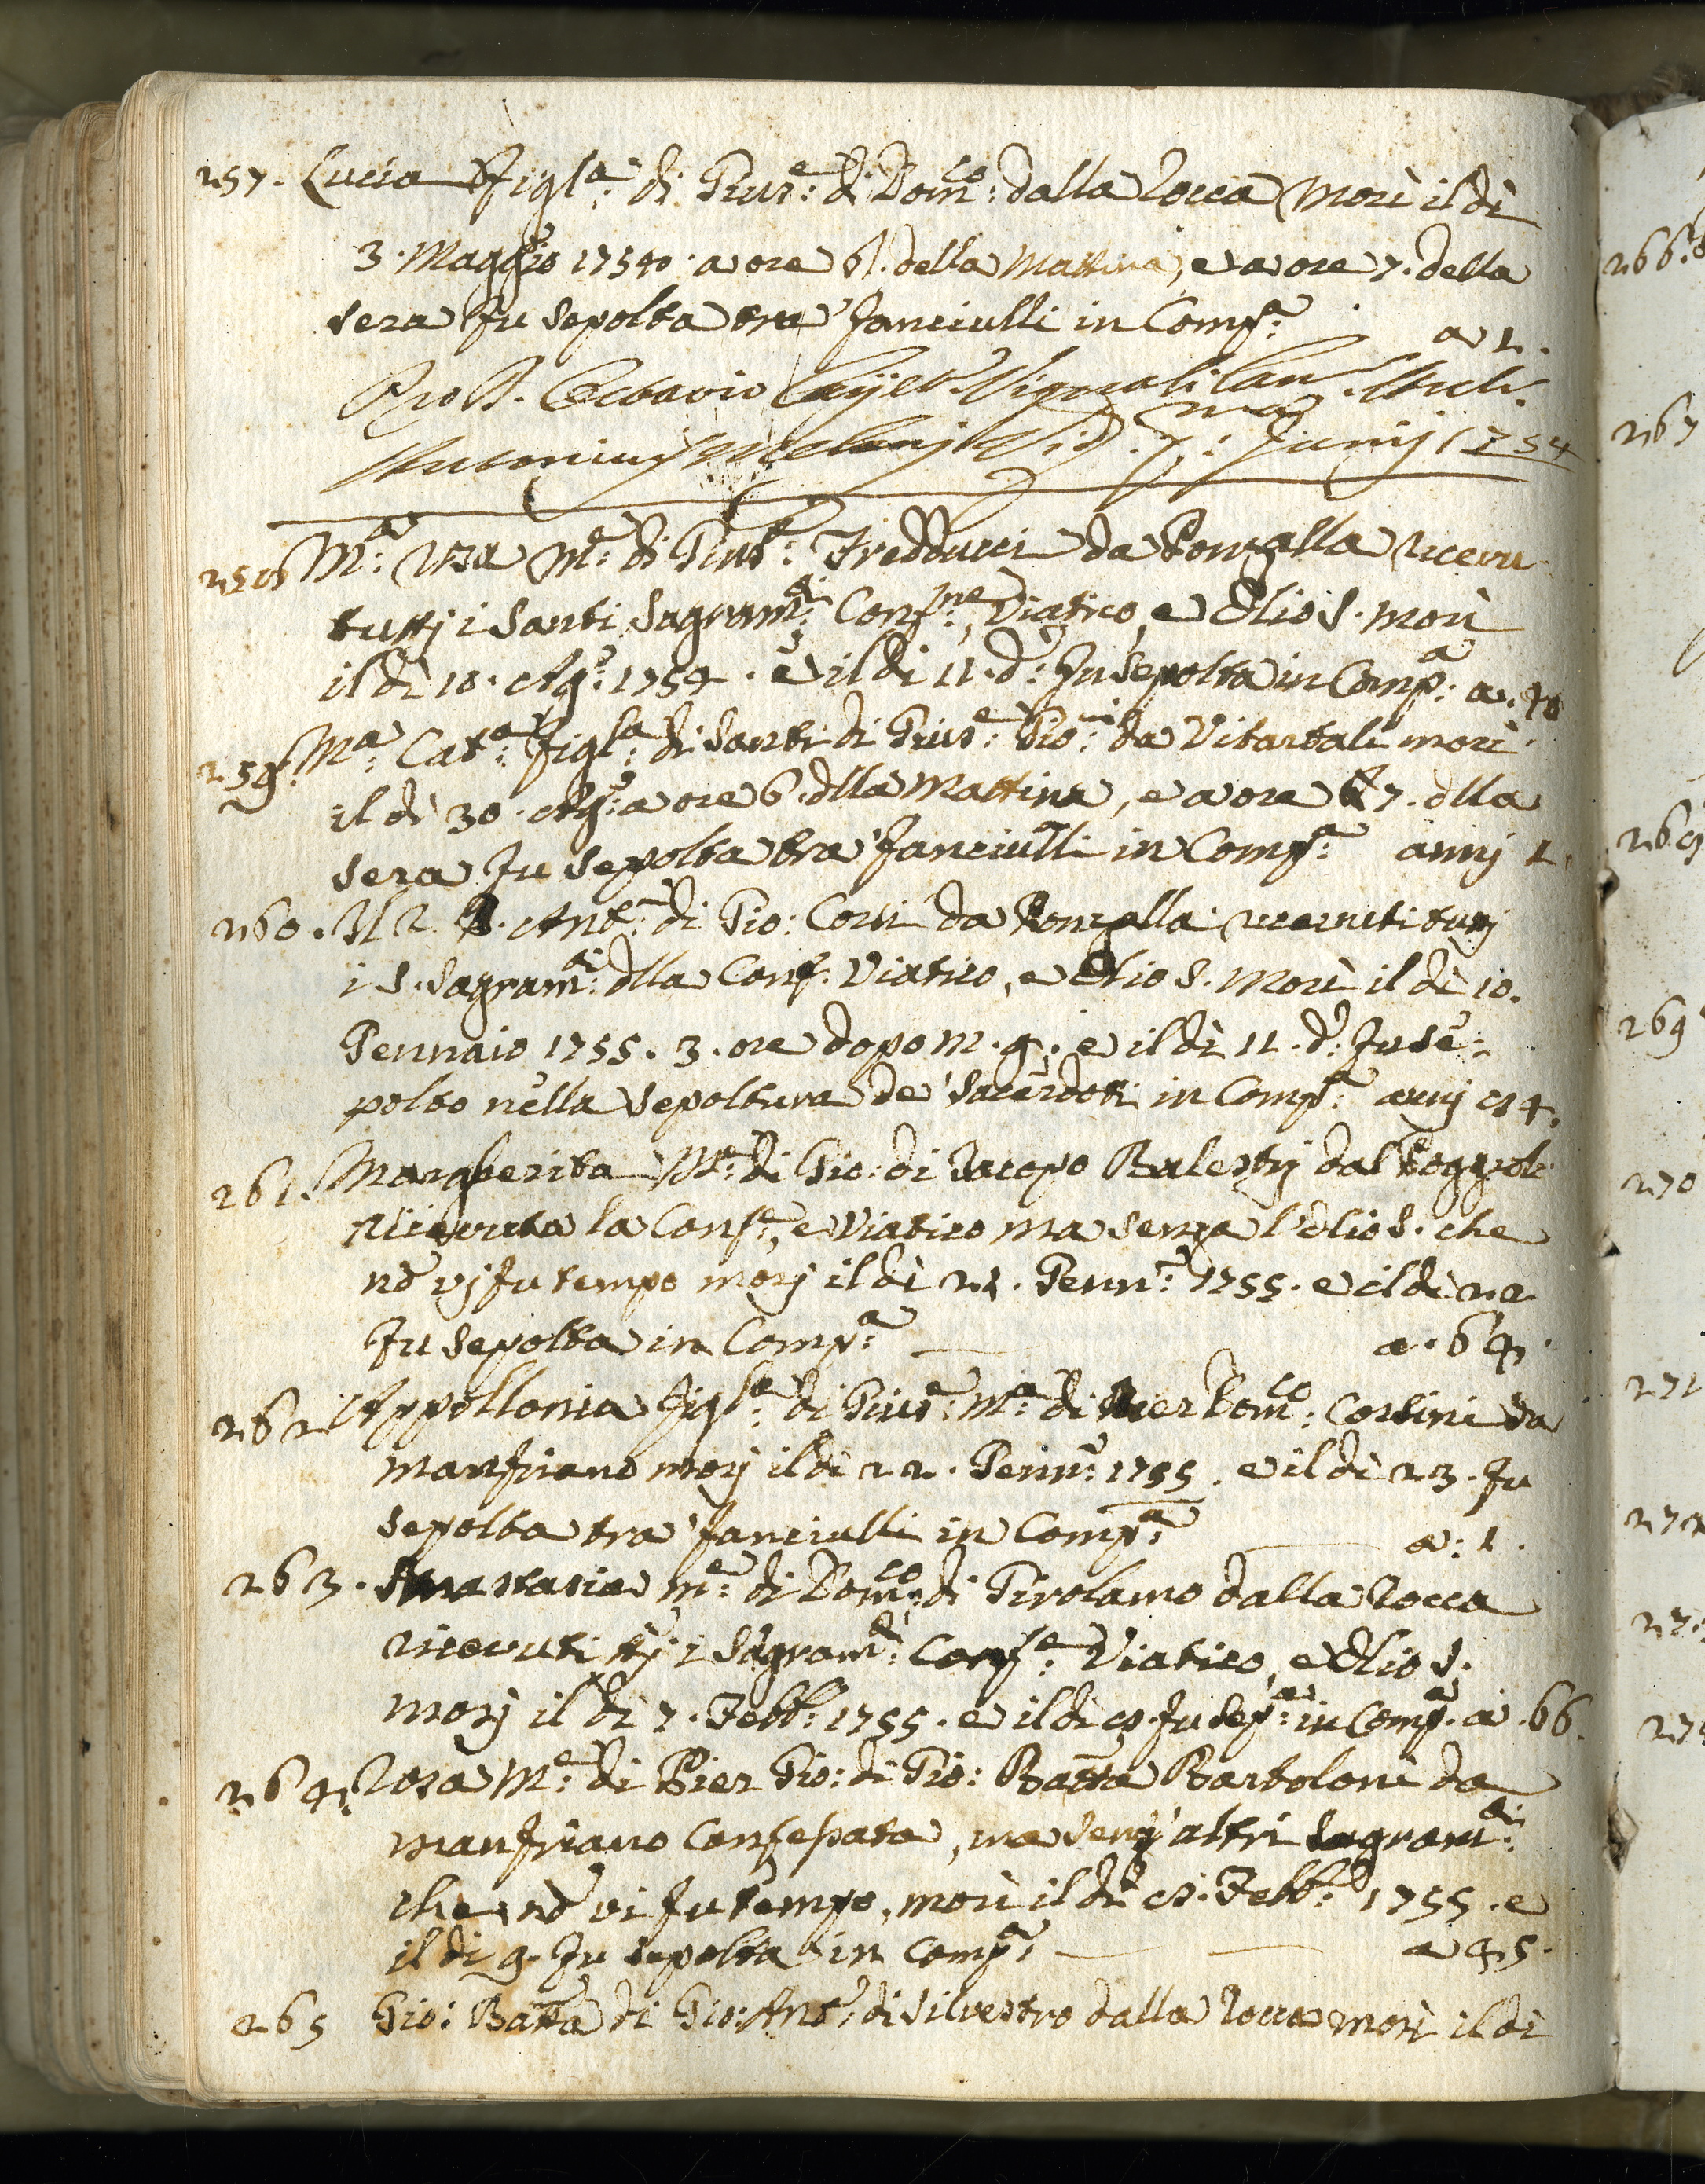 257. Lucia Figl.a di Gius.e di Dom.co dalla Rocca Morì il dì
3. Maggio 1754. a ore 8. della Mattina, e a ore 7. della
sera fu sepolta tra' fanciulli in Comp.a a 1.
Pro R. Octavio Vignali Can.
Antonius Melanj Vis. 7: Junij 1754
258 M.a Rosa M.e di Gius.e Fredducci da Ronzalla ricevu
tuttj i Santi Sagram.ti Conf.ne, Viatico, e Olio S. morì
il dì 10. Ag.o 1754. e il di 11. d.o fu sepolta in Comp.a a. 40
259. M.a Cat.a Figl.a di Santi di Gius.e da Vitartali morì
il dì 30. Ag.o a ore 6. dlla Mattina, e a ore 7. dlla
sera fu sepolta tra' fanciulli in Comp.a annj 1.
260. Il R. Ant.o di Gio: Corsi da Ronzalla ricevuti tutj
i S. Sagram.ti dlla Conf. Viatico, e Olio S. Morì il dì 10.
Gennaio 1755. 3. ore dopo m. g. e il dì 11. d.o fu se:
polto nella sepoltura de' Sacerdoti in Comp.a annj 84.
261. Margherita M.e di Gio: di Jacopo Balestrj dal Poggiolo
Ricevuta la Conf.e, e Viatico ma senza l'olio S. che
nō vj fu tempo morj il dì 21. Genn.o 1755. e il dì 22
fu sepolta in Comp.a a. 64.
262 Appollonia Figl.a di Gius.e M.a di Pier Dom.co Corsini da
manfriano morj il dì 22. Genn.o 1755. e il dì 23. fu
sepolta tra' fanciulli in Comp.a a: 1.
263. Anastasia m.e di Dom.co di Girolamo dalla Rocca
ricevuti ttj i Sagram.ti Conf.e Viatico, e Olio S.
morj il dì 7. Febb.o 1755. e il dì 8. fu sep.a in Comp.a a. 66.
264. Rosa M.e di Pier Gio: di Gio: Batta Bartoloni da
manfriano Confessata, ma senz'altri Sagram.ti
che nō vi fu tempo, morì il dì 8. Febb.o 1755. e
il di 9. fu sepolta in Comp.a a 45.
265 Gio: Batta di Gio: Ant.o di Silvestro dalla Rocca morì il dì
266.
267
268
269
270
271
272